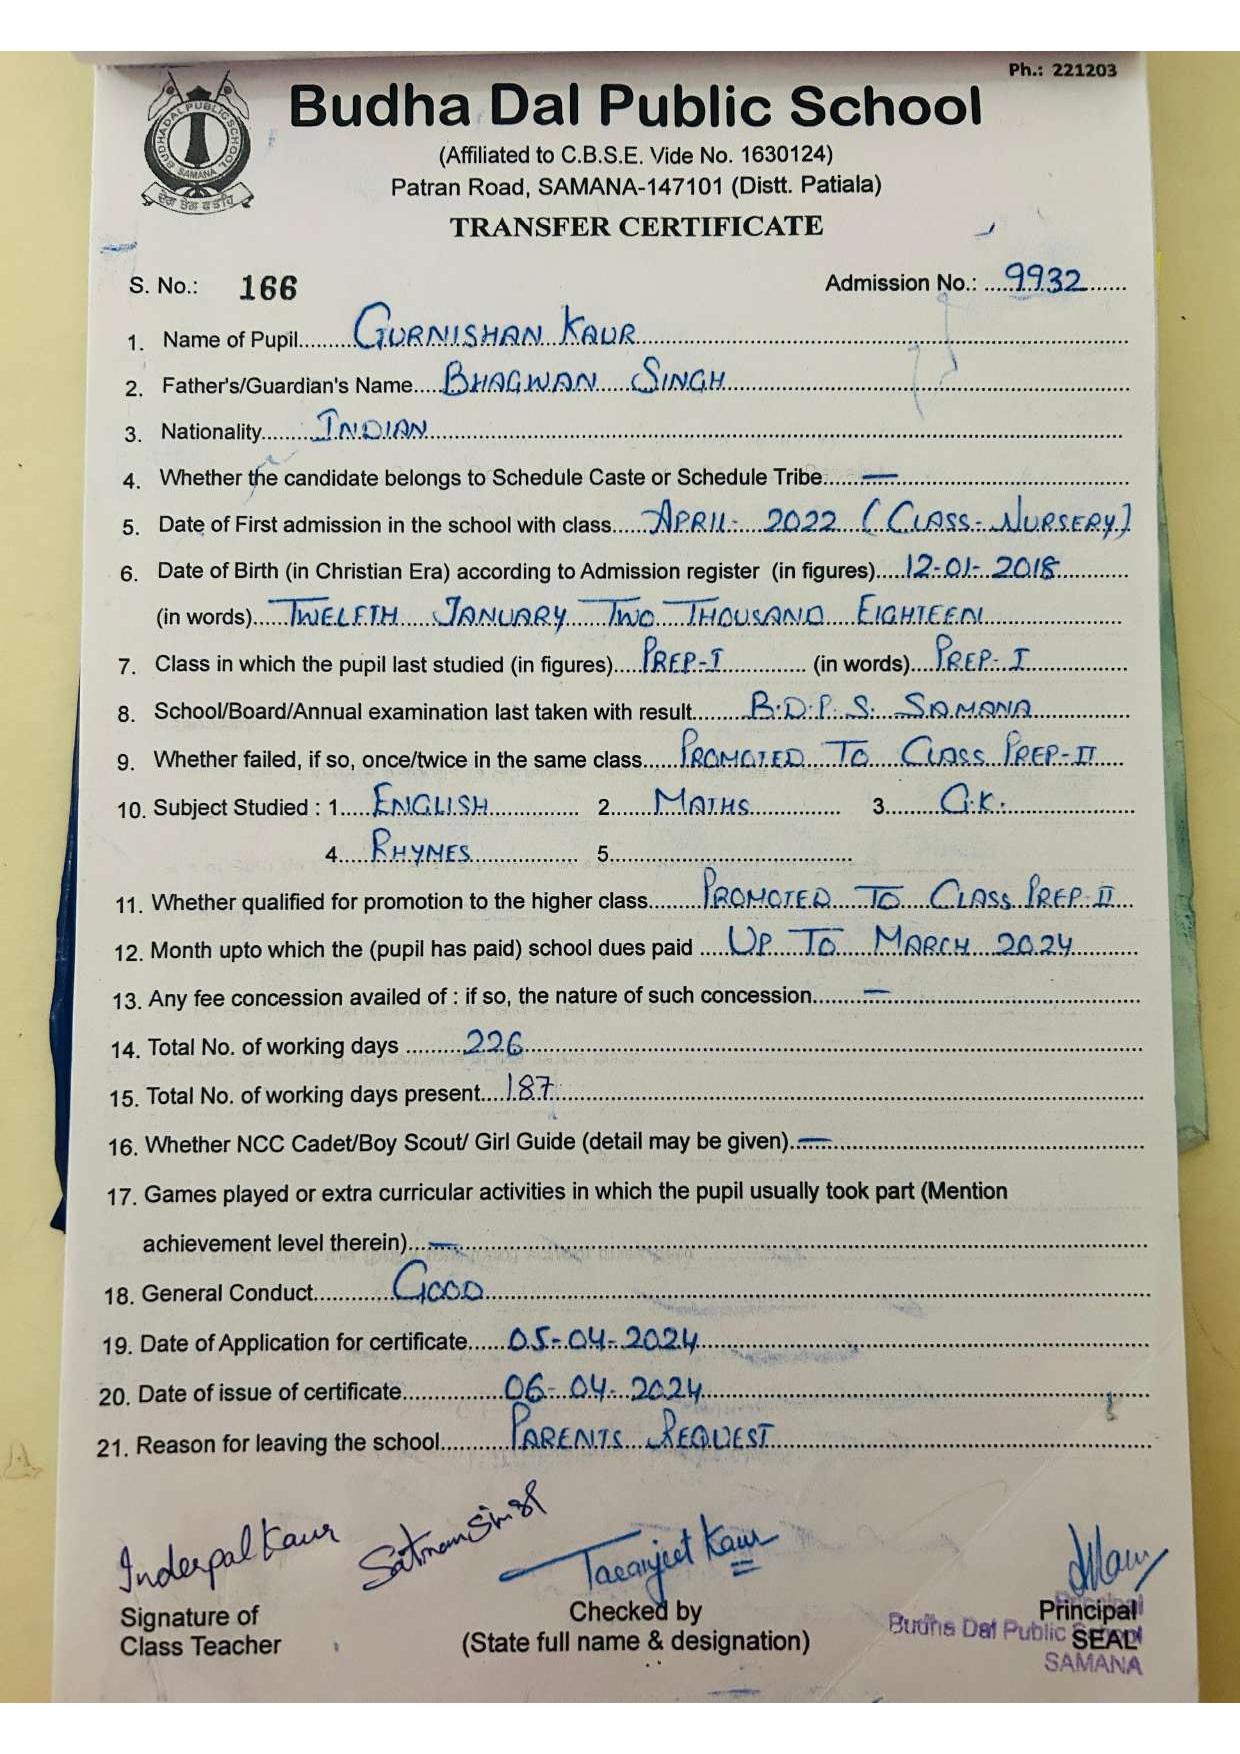 Ph.: 221203
BUDHA DAL PUBLIC SCHOOL, SAMANA
ਦੇਗ ਤੇਗ ਫਤਹਿ
Budha Dal Public School
(Affiliated to C.B.S.E. Vide No. 1630124)
Patran Road, SAMANA-147101 (Distt. Patiala)
TRANSFER CERTIFICATE
S. No.: 166 Admission No.: 9932
1. Name of Pupil GURNISHAN KAUR
2. Father's/Guardian's Name BHAGWAN SINGH
3. Nationality INDIAN
4. Whether the candidate belongs to Schedule Caste or Schedule Tribe —
5. Date of First admission in the school with class APRIL- 2022 (CLASS-NURSERY)
6. Date of Birth (in Christian Era) according to Admission register (in figures) 12-01-2018
(in words) TWELFTH JANUARY TWO THOUSAND EIGHTEEN
7. Class in which the pupil last studied (in figures) PREP-I (in words) PREP-I
8. School/Board/Annual examination last taken with result B.D.P.S. SAMANA
9. Whether failed, if so, once/twice in the same class PROMOTED TO CLASS PREP-II
10. Subject Studied : 1. ENGLISH 2. MATHS 3. G.K.
4. RHYMES 5.
11. Whether qualified for promotion to the higher class PROMOTED TO CLASS PREP-II
12. Month upto which the (pupil has paid) school dues paid UP TO MARCH 2024
13. Any fee concession availed of : if so, the nature of such concession —
14. Total No. of working days 226
15. Total No. of working days present 187
16. Whether NCC Cadet/Boy Scout/ Girl Guide (detail may be given) —
17. Games played or extra curricular activities in which the pupil usually took part (Mention
achievement level therein) —
18. General Conduct GOOD
19. Date of Application for certificate 05-04-2024
20. Date of issue of certificate 06-04-2024
21. Reason for leaving the school PARENTS REQUEST
Inderpal Kaur Satnam Singh Taranjeet Kaur
Signature of Class Teacher
Checked by
(State full name & designation)
Principal
SEAL
Principal
Budha Dal Public School
SAMANA